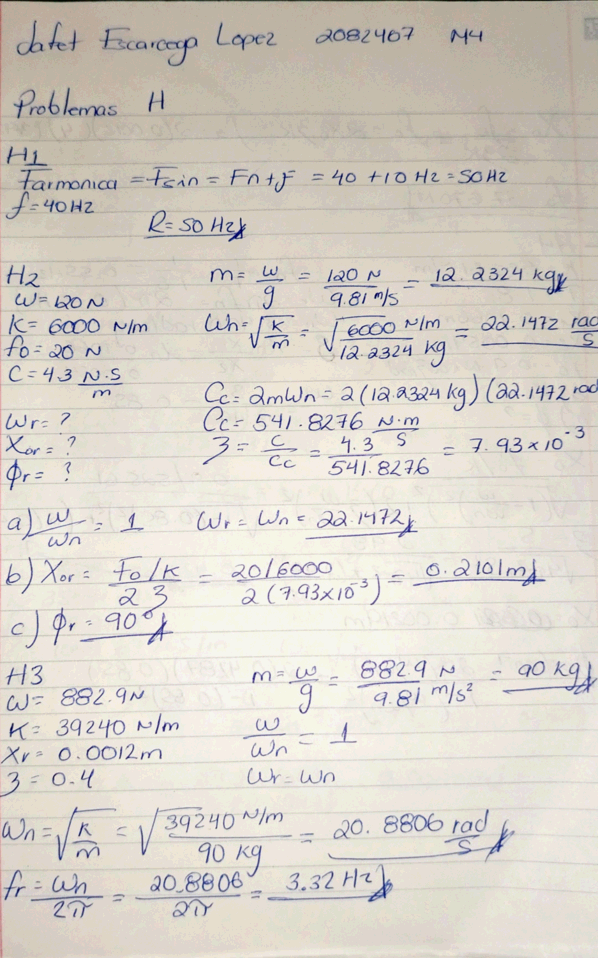 Jafet Escareega Lopez 2082407 M4
Problemas H
H1
Farmonica = Fsin = Fn+f = 40 +10 Hz = 50Hz
f = 40 Hz
R = 50 Hz
H2
ω = 120 N
K = 6000 N/m
fo = 20 N
C = 4.3 N.S/m
m = w/g = 120 N/9.81 m/s = 12.2324 kg
Wn = √K/m = √6000 N/m/12.2324 kg = 22.1472 rad/s
Cc = 2mWn = 2(12.2324 kg)(22.1472 rad
Wr = ?
Xor = ?
φr = ?
Cc = 541.8276 N.m/s
3 = C/Cc = 4.3/541.8276 = 7.93x10⁻³
a) ω/ωn = 1 Wr = Wn = 22.1472
b) Xor = Fo/K/2 3 = 20/6000/2(7.93x10⁻³) = 0.2101m
c) φr = 90°
H3
ω = 882.9N
K = 39240 N/m
Xr = 0.0012m
3 = 0.4
m = w/g = 882.9 N/9.81 m/s² = 90 kg
ω/ωn = 1
Wr = Wn
Wn = √K/m = √39240 N/m/90 kg = 20.8806 rad/s
fr = Wn/2π = 20.8806/2π = 3.32 Hz